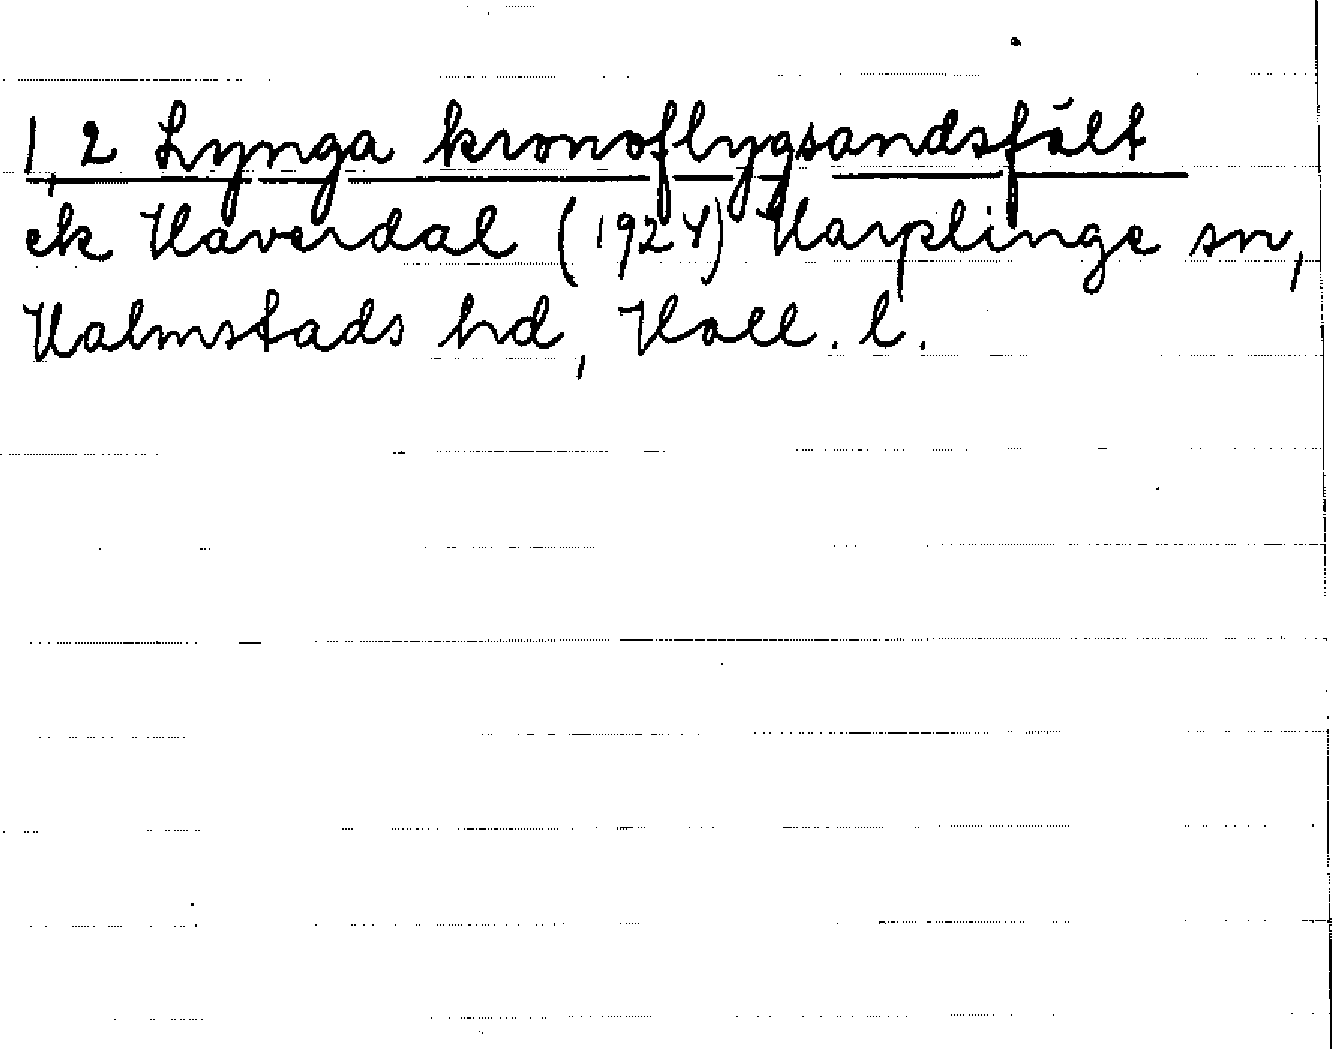 1, 2 Lynga kronoflygsandsfält
ek Haverdal (1924) Harplinge sn,
Halmstads hd, Hall. l.